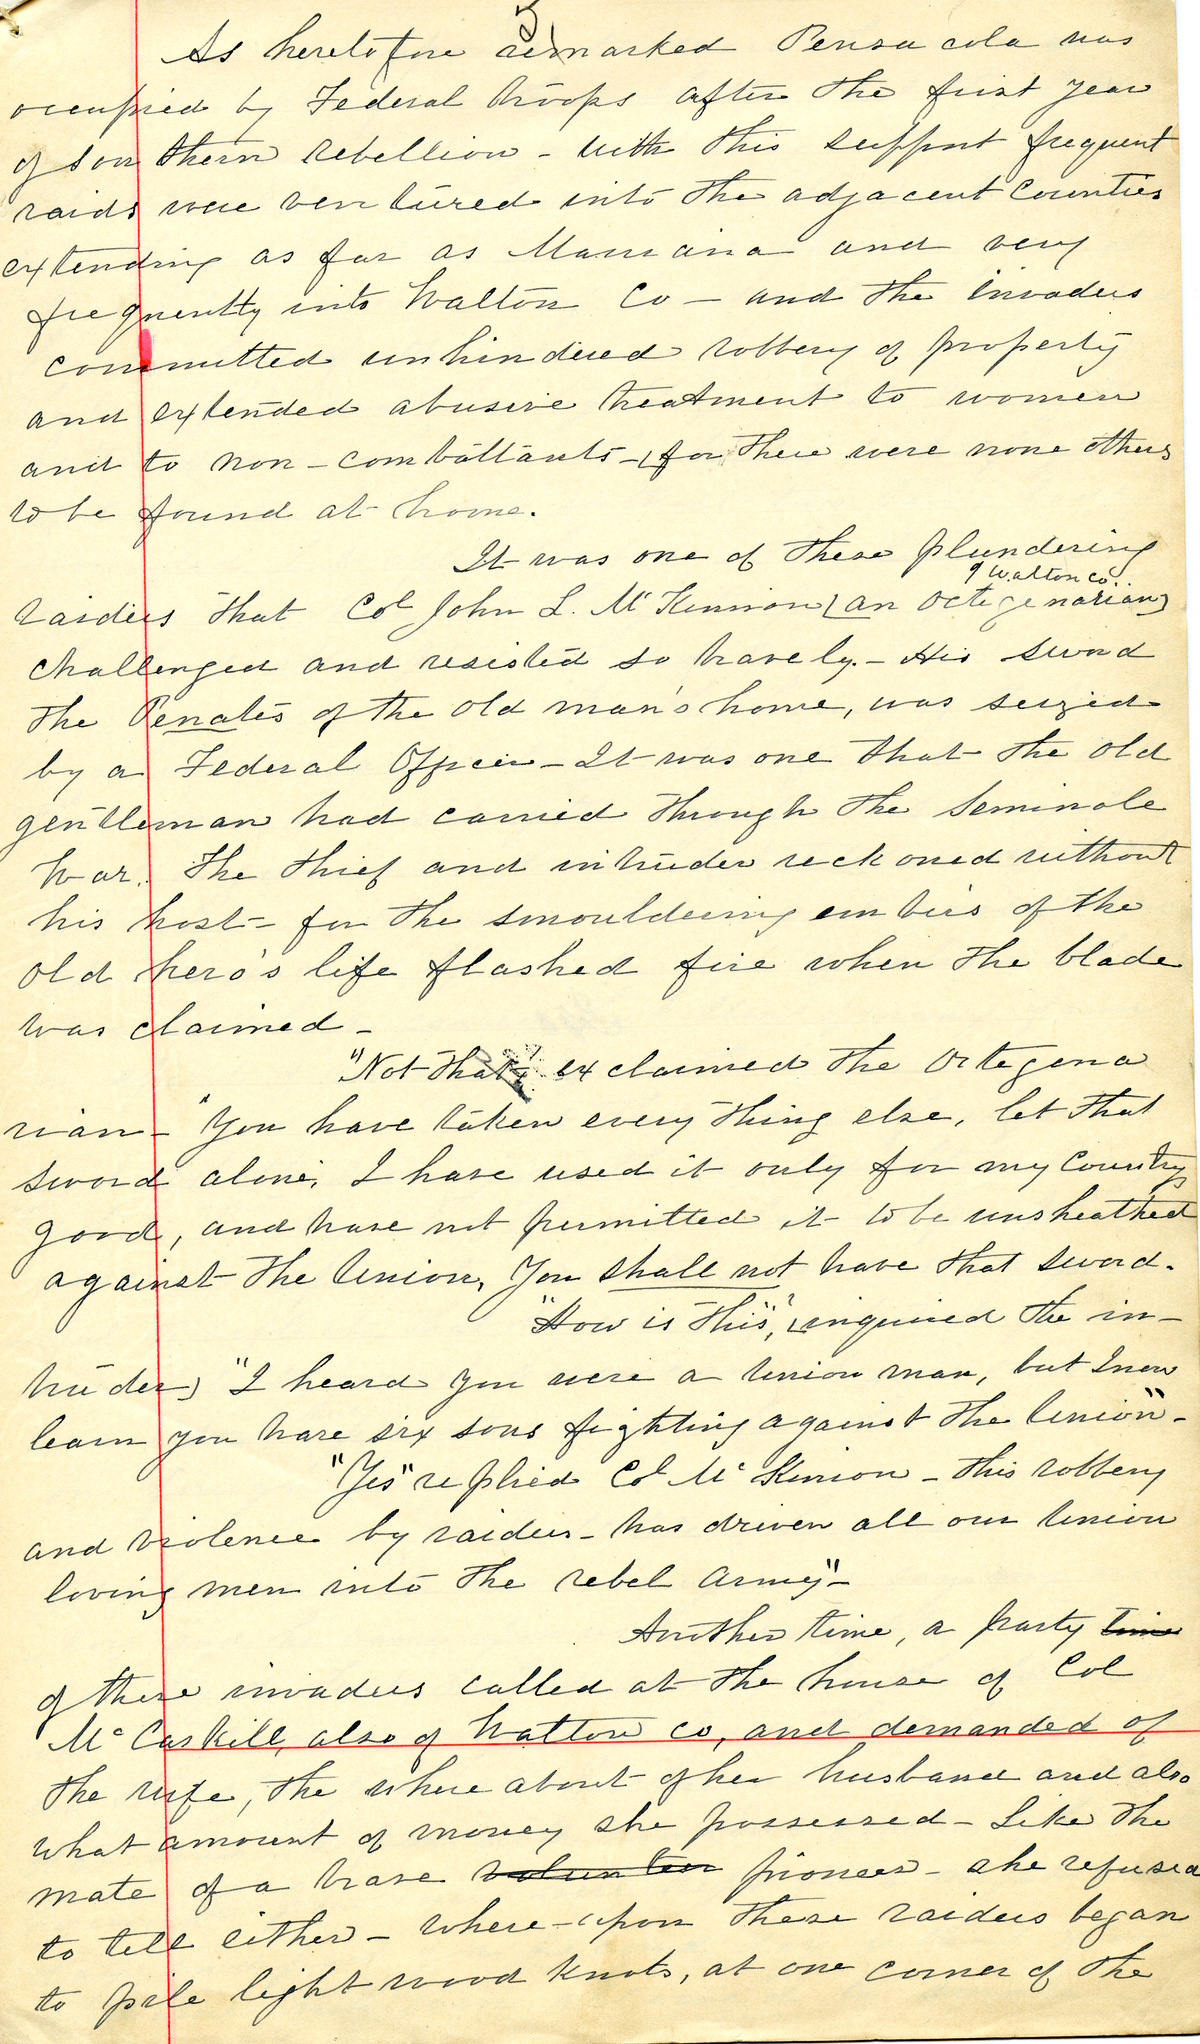 3
As heretofore remarked Pensacola was
occupied by Federal troops after the first year
of southern rebellion - with this support frequent
raids were ventured into the adjacent Counties
extending as far as Mariana and very
frequently into Walton Co - and the invaders
committed unhindered robbery of property
and extended abusive treatment to women
and to non-combattants -, for there were none others
to be found at home.
It was one of these plundering
of Walton Co.
raiders that Col John L. McKinnon (an Octigenarian)
challenged and resisted so bravely. - His sword
the Penates of the old man's home, was seized
by a Federal Officer - It was one that the old
gentleman had carried through the Seminole
War. The thief and intruder reckoned without
his host - for the smouldering embers of the
old hero's life flashed fire when the blade
was claimed -
"Not that" exclaimed the Octegena
rian - "You have taken every thing else, let that
sword alone. I have used it only for my Country
good, and have not permitted it to be unsheathed
against the Union. You shall not have that sword.
"How is this", enquired the in-
truder, "I heard you were a Union man, but I now
learn you have six sons fighting against the Union" -
"Yes" replied Col McKinion - this robbery
and violence by raiders - has driven all our Union
loving men into the rebel Army" -
Another time, a party time
of these invaders called at the house of Col
McCaskill, also of Walton co, and demanded of
the wife, the where about of her husband and also
what amount of money she possessed - Like the
mate of a brave volunteer pioneer - she refused
to tell either - where-upon these raiders began
to pile light wood knots, at one corner of the